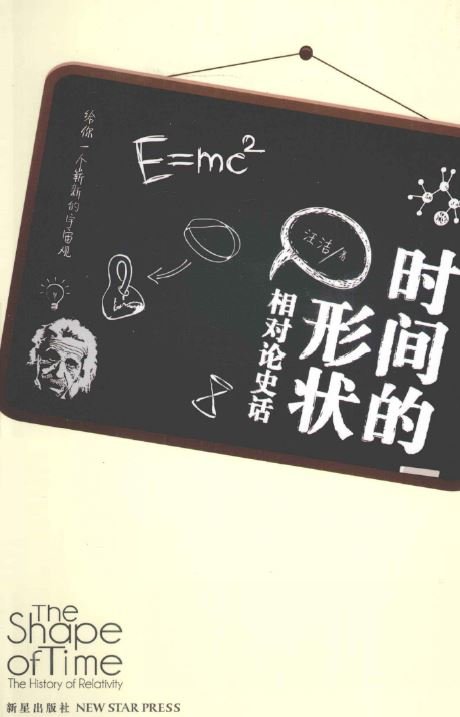 给你一个崭新的宇宙观
E=mc²
汪洁/著
时间的
形状
相对论史话
The
Shape
of Time
The History of Relativity
新星出版社 NEW STAR PRESS